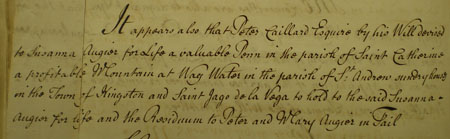 It appears also that Peter Caillard Esquire by his Will devised
to Susanna Augier for Life a valuable Penn in the parish of Saint Catherine
a profitable Mountain at Wag Water in the parish of St. Andrew sundry houses
in the Town of Kingston and Saint Jago de la Vega to hold to the said Susanna
Augier for life and the Residuum to Peter and Mary Augier in Tail